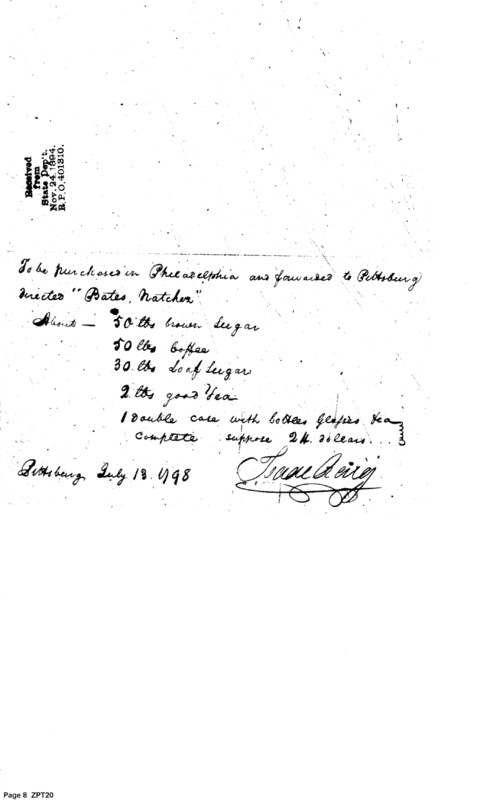 Received
from
State Dep't.
Nov. 24. 1894.
R.P.O. 401310.
To be purchased in Philadelphia and forwarded to Pittsburg
directed "Bates, Natchez"
About — 50 lbs brown Sugar
50 lbs Coffee
30 lbs Loaf Sugar
2 lbs good Tea
1 Double case with bottles glasses &ca
complete suppose 24 dollars...
Pittsburg July 13. 1798
Isaac
Page 8 ZPT20